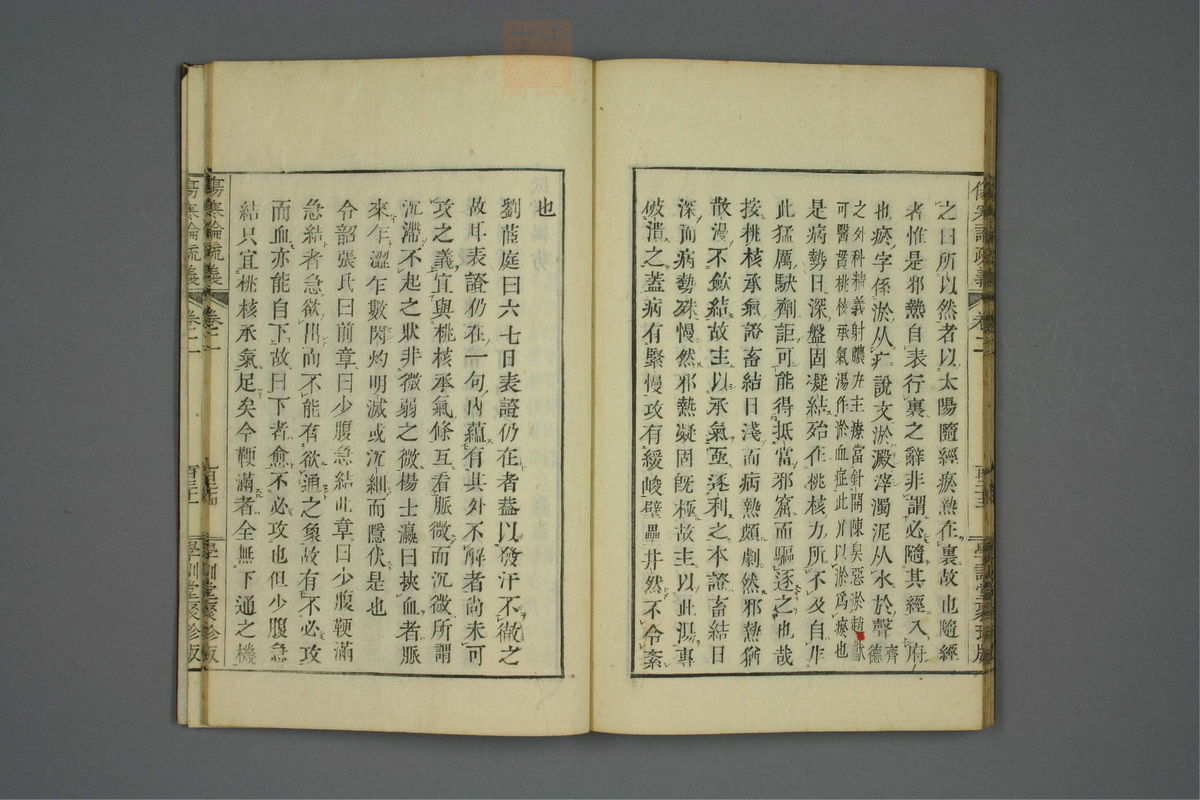 之曰所以然者以太陽隨經瘀熱在裏故也隨經
者惟是邪熱自表行裏之辭非謂必隨其經入府
也瘀字係淤从疒說文淤澱滓濁泥从水於聲齊德
之外科精義射膿方主療當針開陳臭惡淤趙獻
可醫貫桃核承氣湯作淤血症此幷以淤爲瘀也
是病勢日深盤固凝結殆在桃核力所不及自非
此猛厲駃劑詎可能得抵當邪窟而驅逐之也哉
按桃核承氣證畜結日淺而病熱頗劇然邪熱猶
散漫不斂結故主以承氣亟逐利之本證畜結日
深而病勢殊慢然邪熱凝固旣極故主以此湯專
破潰之蓋病有緊慢攻有緩峻壁壘井然不令紊
也
劉茝庭曰六七日表證仍在者蓋以發汗不徹之
故耳表證仍在一句內蘊有其外不解者尚未可
攻之義宜與桃核承氣條互看脈微而沉微所謂
沉滯不起之狀非微弱之微楊士瀛曰挾血者脈
來乍澀乍數閃灼明滅或沉細而隱伏是也
令韶張氏曰前章曰少腹急結此章曰少腹鞕滿
急結者急欲出而不能有欲通之象故有不必攻
而血亦能自下故曰下者愈不必攻也但少腹急
結只宜桃核承氣足矣今鞕滿者全無下通之機
傷寒論疏義
卷二
學訓堂聚珍版